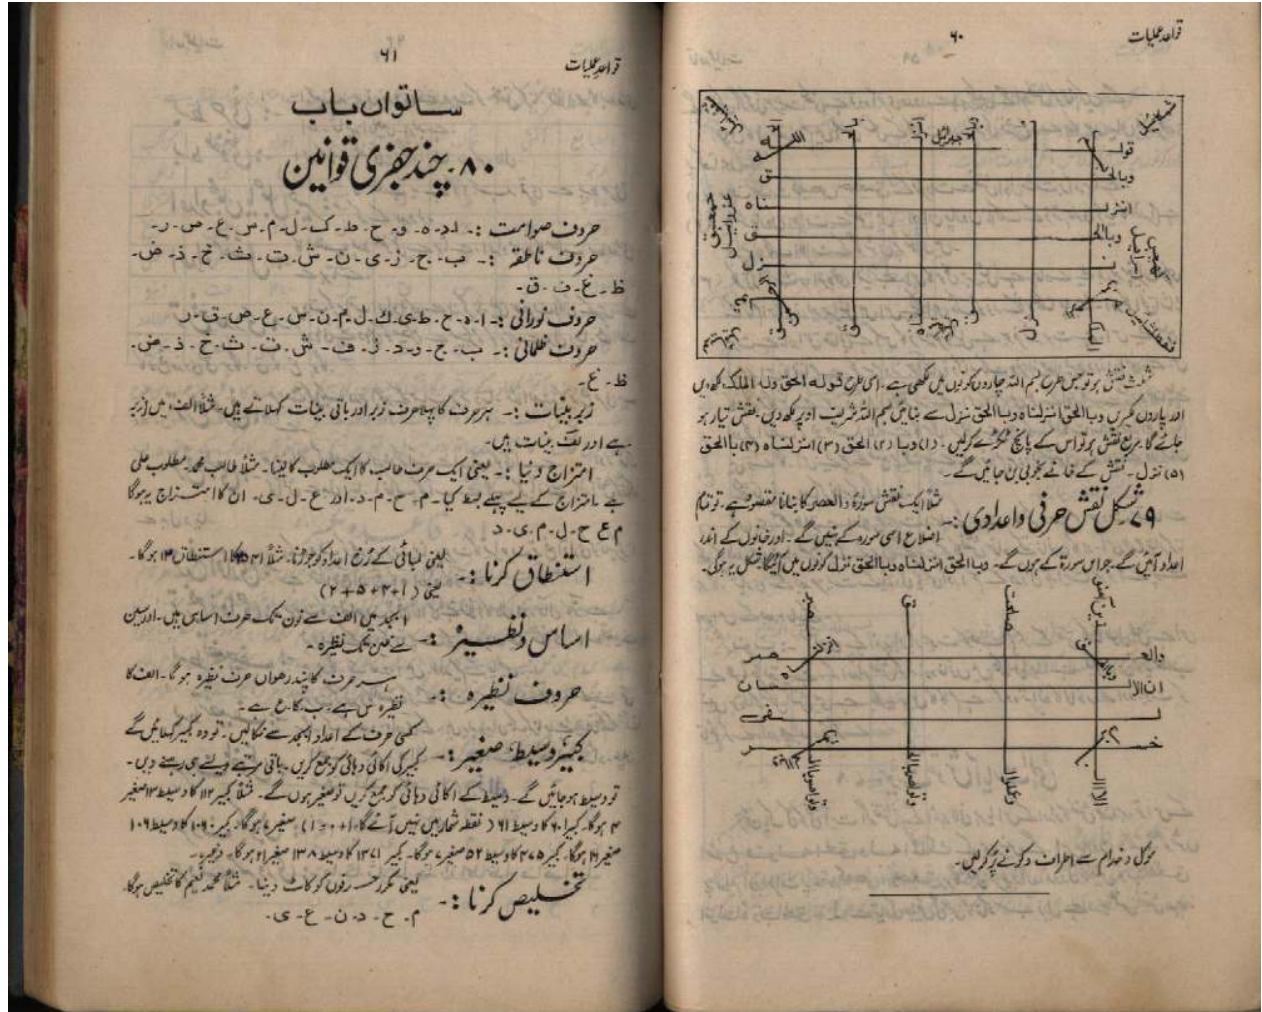 قواعد عملیات
۶۰
قولہ
وبالحق
انزلناہ
وبالحق
نزل
مثلث نقش ہو تو جس طرح بسم اللہ چاروں کونوں میں لکھی ہے۔ اسی طرح قولہ الحق ولہ الملک لکھ دیں
اور چاروں لکیریں وبالحق انزلناہ وبالحق نزل سے بنائیں بسم اللہ شریف اوپر لکھ دیں۔ نقش تیار ہو
جائے گا۔ مربع نقش ہو تو اس کے پانچ ٹکڑے کرلیں۔ (۱) وبا (۲) الحق (۳) انزلناہ (۴) بالحق
(۵) نزل۔ نقش کے خانے بخوبی بن جائیں گے۔
۷۹۔ شکل نقش حرفی و اعدادی :۔ مثلاً ایک نقش سورۃ والعصر کا بنانا مقصود ہے۔ تو تمام
اضلاع اسی سورہ کے بنیں گے۔ اور خانوں کے اندر
اعداد آئیں گے۔ جو اس سورۃ کے ہوں گے۔ وبالحق انزلناہ وبالحق نزل کونوں میں آئیگا شکل یہ ہوگی۔
والعصر
ان الانسان
لفی
خسر
موکل و خدام سے اطراف و کونے پُر کرلیں۔
قواعد عملیات
۶۱
ساتواں باب
۸۰۔ چند جفری قوانین
حروف صوامت :۔ ا۔ د۔ ہ۔ و۔ ح۔ ط۔ ک۔ ل۔ م۔ س۔ ع۔ ص۔ ر۔
حروف ناطقہ :۔ ب۔ ج۔ ز۔ ی۔ ن۔ ش۔ ت۔ ث۔ خ۔ ذ۔ ض۔
ظ۔ غ۔ ف۔ ق۔
حروف نورانی :۔ ا۔ ہ۔ ح۔ ط۔ ی۔ ک۔ ل۔ م۔ ن۔ س۔ ع۔ ص۔ ق۔ ر
حروف ظلمانی :۔ ب۔ ج۔ د۔ و۔ ز۔ ف۔ ش۔ ت۔ ث۔ خ۔ ذ۔ ض۔
ظ۔ غ۔
زبر بینات :۔ ہر حرف کا پہلا حرف زبر اور باقی بینات کہلاتے ہیں۔ مثلاً الف میں ا زبر
ہے اور لف بینات ہیں۔
امتزاج دینا :۔ یعنی ایک حرف طالب کا ایک مطلوب کا لینا۔ مثلاً طالب محمد۔ مطلوب علی
ہے۔ امتزاج کے لیے پہلے بسط کیا۔ م۔ ح۔ م۔ د۔ اور ع۔ ل۔ ی۔ ان کا امتزاج یہ ہوگا
م ع ح۔ ل۔ م۔ ی۔ د
استنطاق کرنا :۔ یعنی لمبائی کے رُخ اعداد کو جوڑنا۔ مثلاً ۲۵۴۱ کا استنطاق ۱۲ ہوگا۔
یعنی (۱+۴+۵+۲)
اساس و نظیرہ :۔ ابجد میں الف سے نون تک حرف اساس ہیں۔ اور سین
سے غین تک نظیرہ۔
حروف نظیرہ :۔ ہر حرف کا پندرھواں حرف نظیرہ ہو گا۔ الف کا
نظیرہ س ہے۔ ب۔ کا۔ ع ہے۔
کبیر، وسیط، صغیر :۔ کسی حرف کے اعداد ابجد سے نکالیں۔ تو وہ کبیر کہلائیں گے
کبیر کی اکائی دہائی کو جمع کریں۔ باقی مرتبے ویسے ہی رہنے دیں۔
تو وسیط ہو جائیں گے۔ وسیط کے اکائی دہائی کو جمع کریں تو صغیر ہوں گے۔ مثلاً کبیر ۱۱۲ کا وسیط ۱۳ صغیر
۴ ہوگا۔ کبیر ۶۰۱ کا وسیط ۶۱ (نقطہ شمار میں نہیں آئے گا ۱+۰=۱) صغیر ۷ ہوگا۔ کبیر ۱۰۶۰ کا وسیط ۱۰۶
صغیر ۱۶ ہوگا۔ کبیر ۴۷۵ کا وسیط ۵۲ صغیر ۷ ہوگا۔ کبیر ۱۳۷۱ کا وسیط ۱۳۸ صغیر ۲۱ ہوگا۔ وغیرہ۔
تخلیص کرنا :۔ یعنی مکرر حرفوں کو کاٹ دینا۔ مثلاً محمد نعیم کا تخلیص ہوگا
م۔ ح۔ د۔ ن۔ ع۔ ی۔